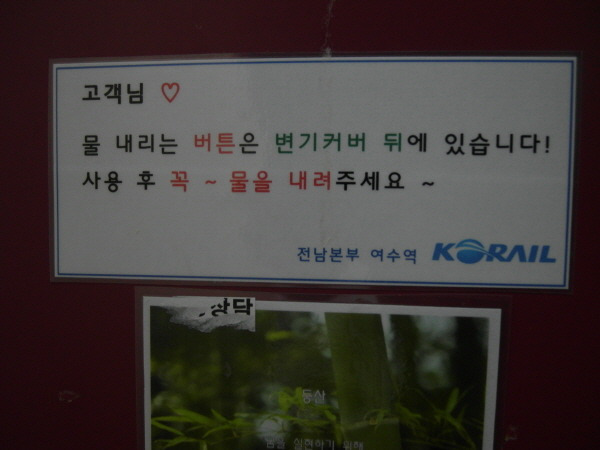 고객님 ♡
물 내리는 버튼은 변기커버 뒤에 있습니다!
사용 후 꼭 ~ 물을 내려주세요 ~
전남본부 여수역 KORAIL
등산
꿈을 실현하기 위해